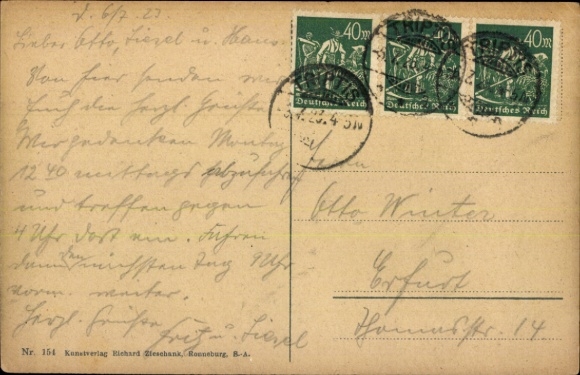 d. 6/7. 23.
Lieber Otto, Liesel u. Hans.
Von hier senden wir
Euch die herzl. Grüße
Wir gedenken Montag
12 40 mittags abzufahren
und treffen gegen
4 Uhr dort ein. Fahren
dann den nächsten Tag 9 Uhr
vorm. weiter.
Herzl. Grüße
Fritz u. Liesel
40m 40m 40m
Deutsches Reich Deutsches Reich Deutsches Reich
TRIPTIS
Otto Winter
Erfurt
Thomasstr. 14.
Nr. 154 Kunstverlag Richard Zieschank, Ronneburg, S.-A.